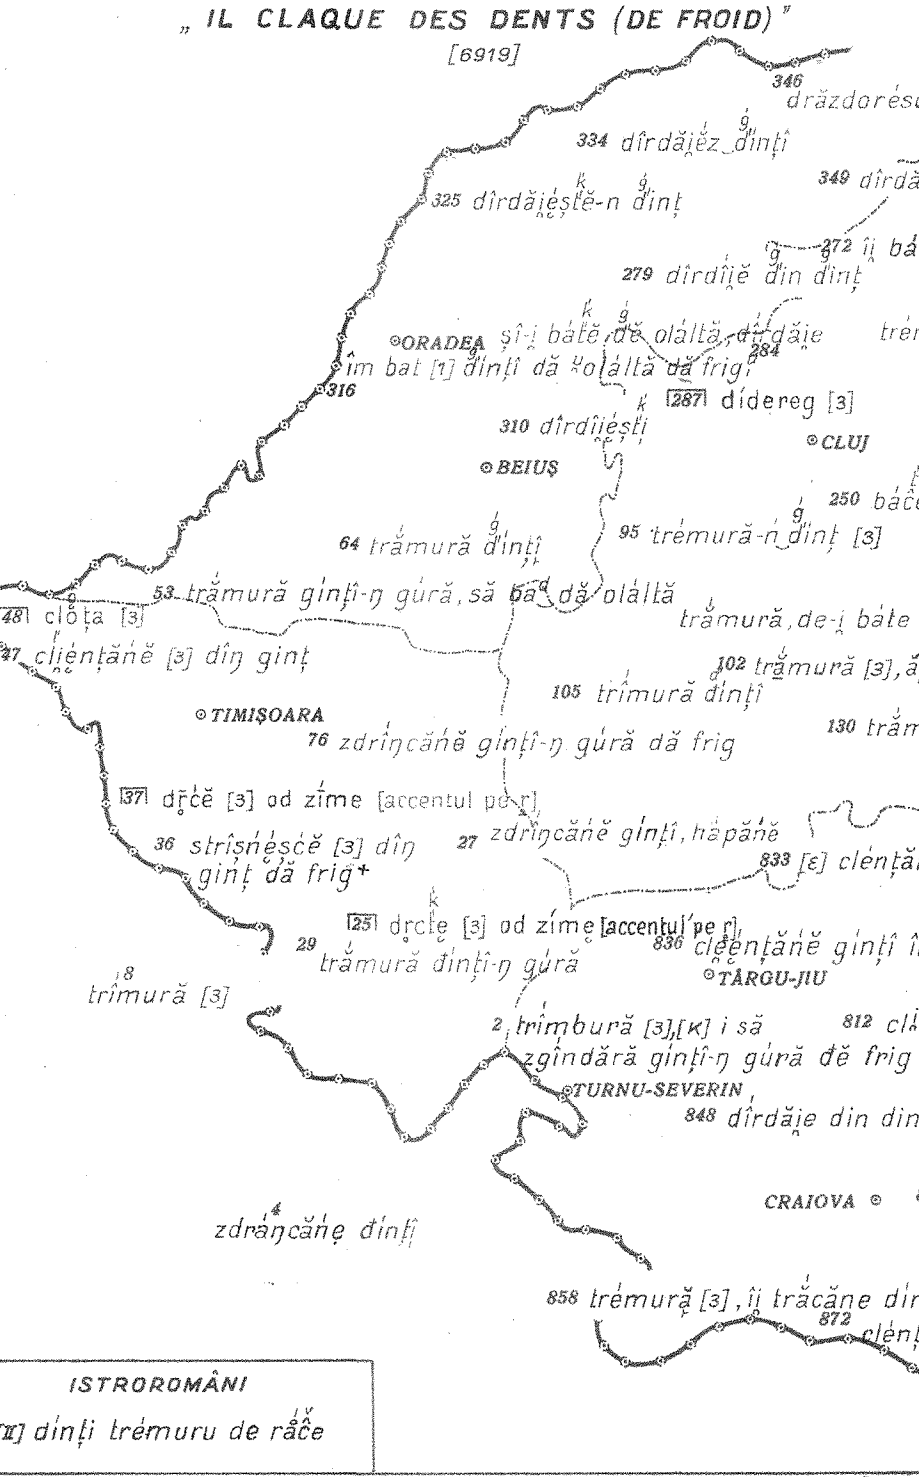 „ IL CLAQUE DES DENTS (DE FROID)”
[6919]
346
drăzdorésc
334 dîrdăi̯ĕ́z‿dințî
349 dîrdă
325 dîrdăi̯éștĕ-n dinț
272 îi̯ bá
279 dîrdîi̯ĕ din dinț
șî-i̯ bátĕ dĕ oláltă, dîrdăi̯e
trém
⊙ORADEA
284
îm bat [1] dínțî dă ᵘoláltă dă frig
316
287 dídereg [3]
310 dîrdîi̯éști
⊙CLUJ
⊙BEIUȘ
250 báĉe
64 trắmură dinți̯î
95 trémură-n‿dinț [3]
53 trắmură gínțî-ŋ gúră, să bad dă oláltă
48 clóța [3]
trắmură, de-i̯ báte
47 cli̯énțăńĕ [3] dîŋ ginț
102 trắmură [3],
105 trîmură dínțî
⊙TIMIȘOARA
130 trăm
76 zdrîŋcăńĕ gínțî-ŋ gúră dă frig
37 dr̥ćĕ [3] od zíme [accentul pe r̥]
27 zdrîŋcăńĕ gínțî, hắpăńĕ
36 strîșńéșćĕ [3] dîŋ
ginț dă frig+
833 [ε] clénță
25 dr̥cte [3] od zíme [accentul pe r̥]
29
trắmură đínțî-ŋ gúră
836 cleénțăńĕ gínțî î
⊙TÂRGU-JIU
8
trîmură [3]
2 trîmbură [3],[K] i să
zgîndără gínțî-ŋ gúră đĕ frig
812 clă
⊙TURNU-SEVERIN
848 dîrdăi̯e din din
CRAIOVA ⊙
4
zdráŋcăńe đínțî
858 trémură [3], îi̯ trăcăne din
872
clénț
ISTROROMÂNI
[II] dínți trémuru de råĉe